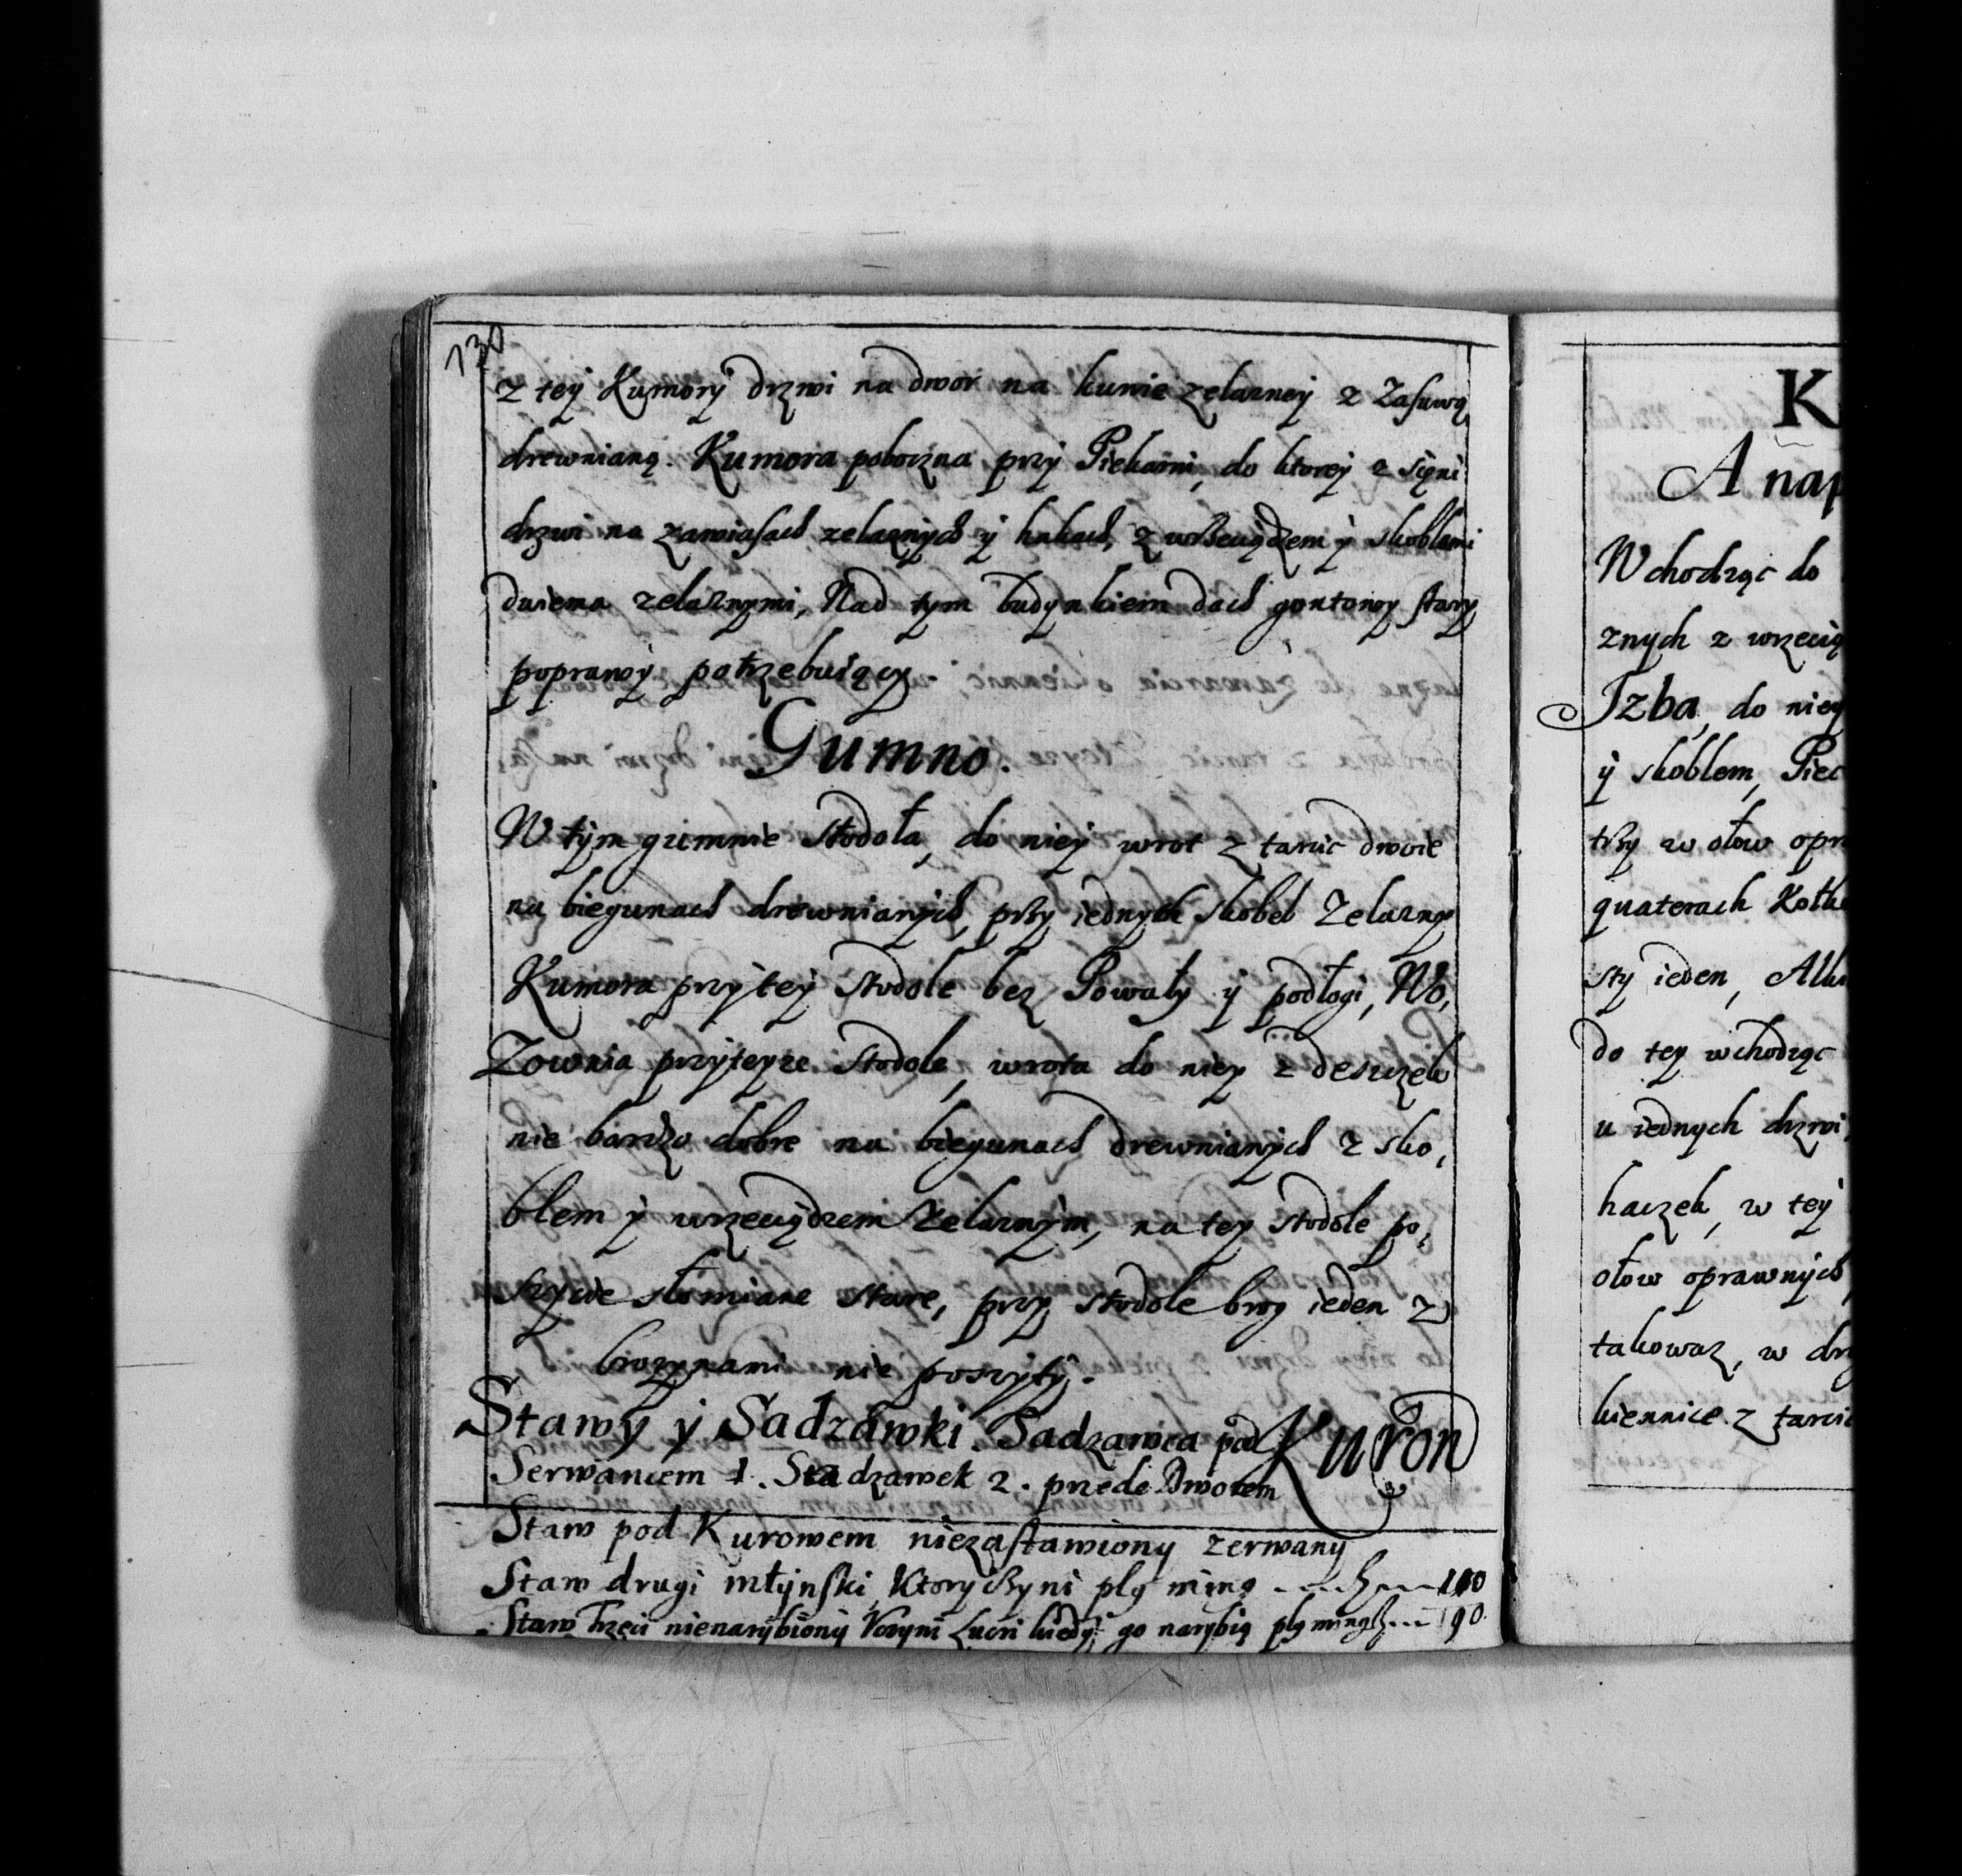 130
z teÿ Kumorÿ drzwi na dwor na kunie zelazneÿ z Zasuwą
drewnianą. Kumora poboczna przy Piekarni, do ktoreÿ z sięni
drzwi na zawiasach zelaznÿch ÿ hakach, z wrzeciądzem ÿ skoblami
dwiema zelaznymi, Nad tym budynkiem dach gontowy stary
poprawÿ potrzebuiącÿ.
Gumno.
W tÿm gumnie stodoła, do nieÿ wrot z tarcic dwoie
na biegunach drewnianÿch, przy iednych skobel Zelazny
Kumora przÿ teÿ stodole bez Powały ÿ podłogi, Wo,
Zownia przÿteÿze stodole, wrota do nieÿ z deszczek
nie bardzo dobre na biegunach drewnianÿch z sko,
blem ÿ wrzeciądzem Zelaznÿm, na teÿ stodole po,
szycie słomiane stare, przy stodole brog ieden z
brozynami nie poszytÿ.
Stawy ÿ Sadzawki. Sadzawka pod
Serwańcem 1. Sadzawek 2. przede Dworem
Kuron
Staw pod Kurowem niezastawiony zerwany
Staw drugi młÿnski, Ktory czyni plg ming 100
Staw Trzeci nienarybionÿ go narybią plg ming 90
K
A nap
Wchodząc do
znych z wrzecią
Izba, do niey
ÿ skoblem, Piec
trzy w ołow opr
quaterach Kołk
sty ieden, Alk
do tey wchodząc
u iednych drzwi
haczek, w teÿ
ołow oprawnÿch
takowaz, w dr
kiennice z tarcic